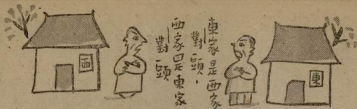 東
東家是西家
對頭
西家是東家
對頭
西